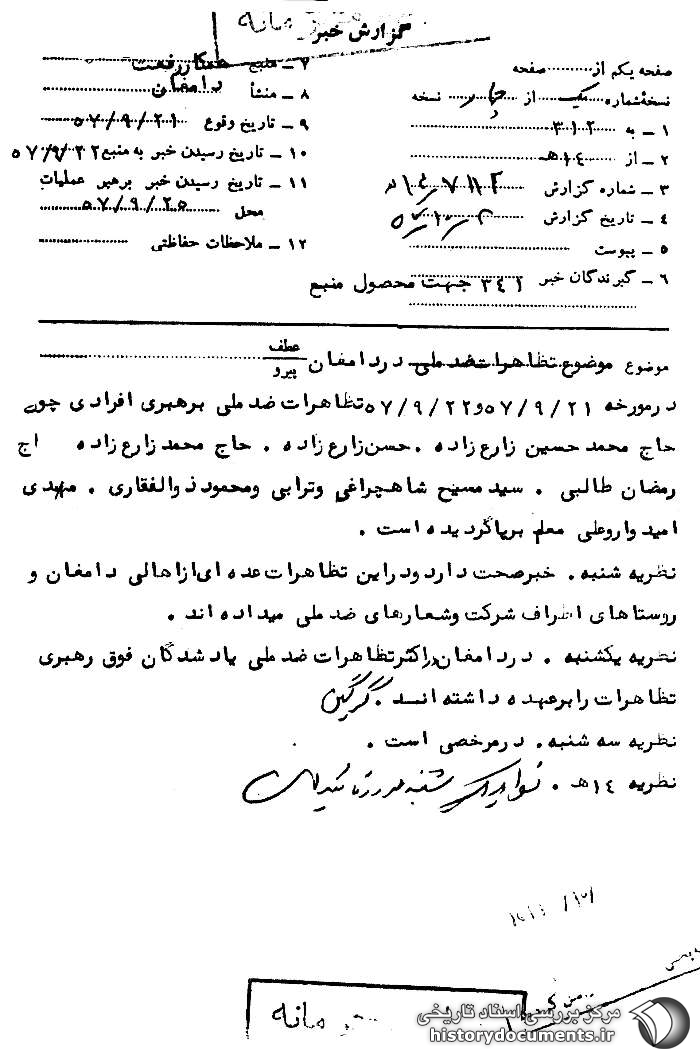 گزارش خبر
صفحه یکم از صفحه
نسخه‌شماره یک از چهار نسخه
۱ – به ۳۱۲
۲ – از ۱۴هـ
۳ – شماره گزارش
۴ – تاریخ گزارش
۵ – پیوست
۶ – گیرندگان خبر ۳۴۱ جهت محصول منبع
۷ – منبع همکار رفعت
۸ – منشأ دامغان
۹ – تاریخ وقوع ۵۷/۹/۲۱
۱۰ – تاریخ رسیدن خبر به منبع ۵۷/۹/۲۲
۱۱ – تاریخ رسیدن خبر برهبر عملیات
محل ۵۷/۹/۲۵
۱۲ – ملاحظات حفاظتی
موضوع موضوع تظاهرات ضد ملی در دامغان عطف پیرو
درمورخه ۵۷/۹/۲۱ و ۵۷/۹/۲۲ تظاهرات ضد ملی برهبری افرادی چون
حاج محمد حسین زارع زاده . حسن زارع زاده . حاج محمد زارع زاده اج
رمضان طالبی . سید مسیح شاهچراغی وترابی ومحمود ذوالفقاری . مهدی
امیدوار وعلی معلم برپا گردیده است .
نظریه شنبه . خبر صحت دارد ودر این تظاهرات عده ای از اهالی دامغان و
روستاهای اطراف شرکت وشعارهای ضد ملی میداده اند .
نظریه یکشنبه . در دامغان در اکثر تظاهرات ضد ملی یاد شدگان فوق رهبری
تظاهرات را برعهده داشته انسد . گرگین
نظریه سه شنبه . درمرخصی است .
نظریه ۱۴هـ .
مانه
مرکز بررسی اسناد تاریخی
historydocuments.ir